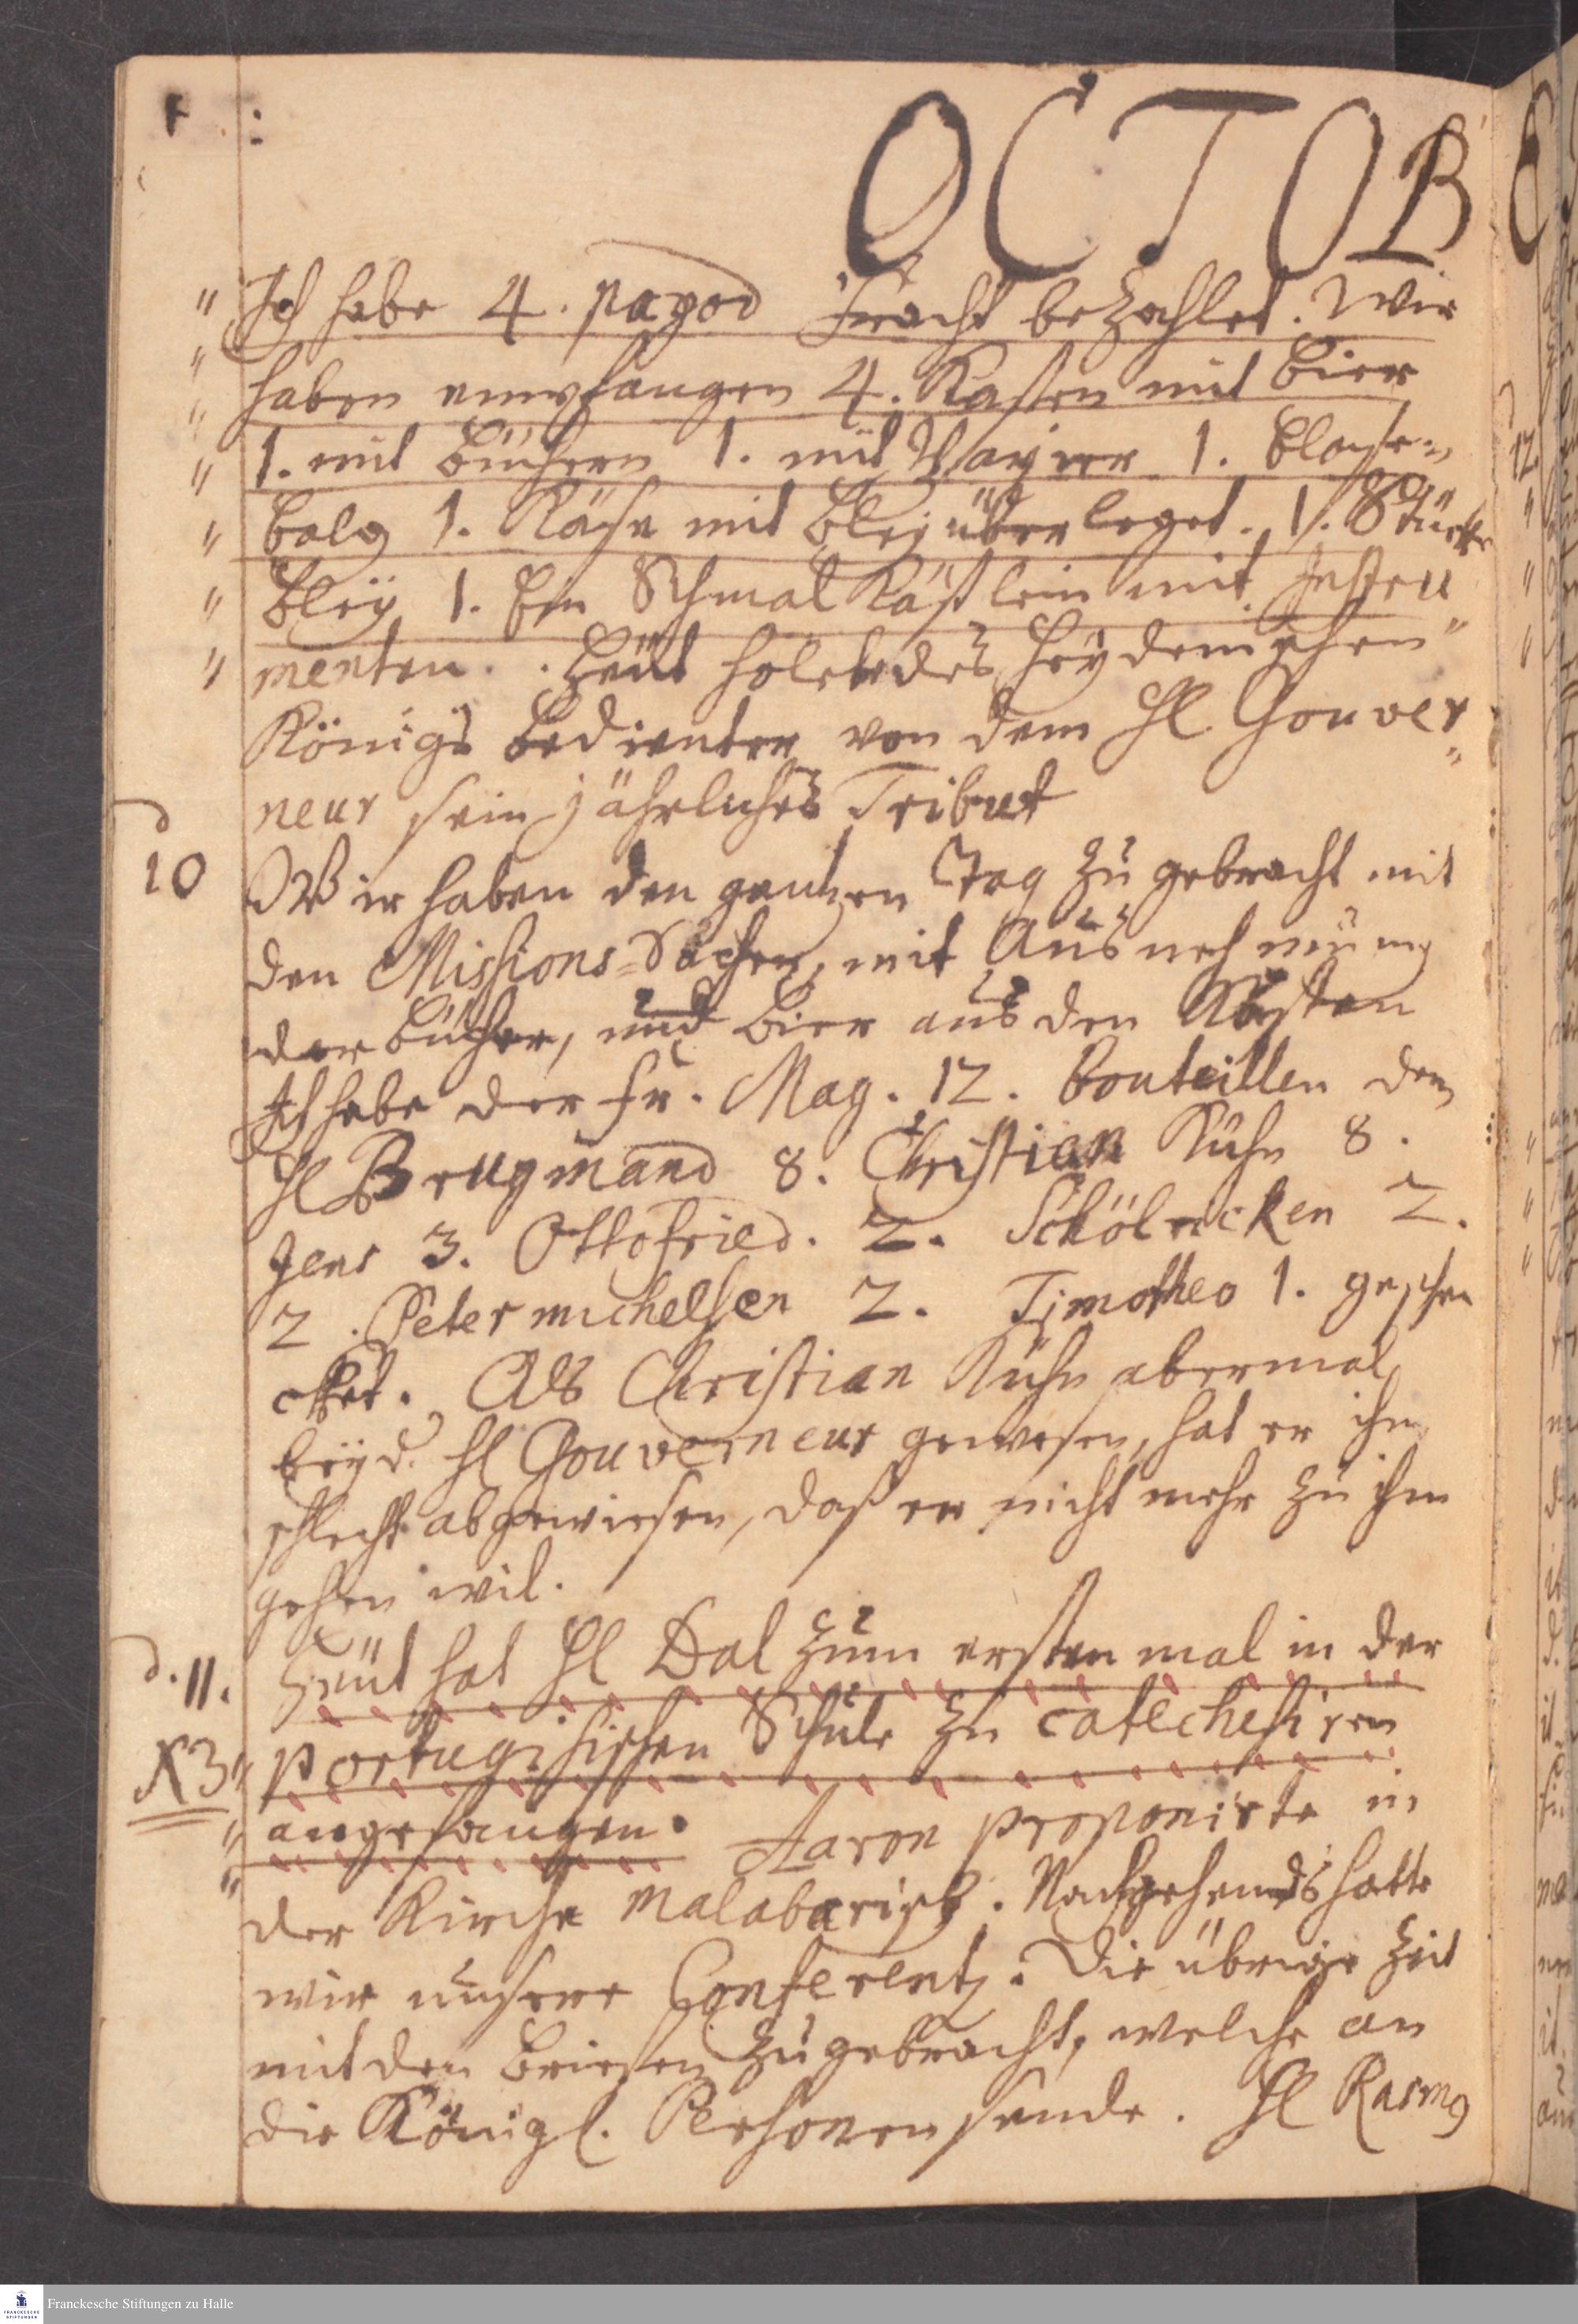 OCTOB
" Ich habe 4. pagod Fracht bezahlet. Wir
" haben empfangen 4. Kasten mit Bier
" 1. mit Büchern 1. mit Papier 1. Blasen
" balg 1. Käse mit Bley überleget. 1. Stück
" Bley 1. Ein Schmal Kästlein mit Instru
" menten. Heut holete des Heydenischen "
Königs Bedienter von dem Hl Gouver
neur sein jährliches Tribut
d 10 Wir haben den gantzen Tag zu gebracht mit
den Missions-Sachen, mit Ausnehmung
der Bücher, und Bier aus den Kasten
Ich habe der Fr. Mag. 12. Bouteillen dem
Hl Brugmand 8. Christian Kühn 8.
Jens 3. Ottofried. 2. Schölricken 2.
2. Peter michelsen 2. Timotheo 1. geschen
cket. Als Christian Kühn abermal
bey d. Hl Gouverneur gewesen, hat er ihn
schlecht abgewiesen, daß er nicht mehr zu ihm
gehen wil.
d. 11. Heut hat Hl Dal zum ersten mal in der
N3 " portugisischen Schule zu catechesiren
" angefangen. Aaron proponirte in
" der Kirche malabarisch. Nachgehends hatte
wir unsere Conferentz. Die übrige Zeit
mit den Briefen zu gebracht, welche an
die Königl. Personen sende. Hl Rasmg
Franckesche Stiftungen zu Halle